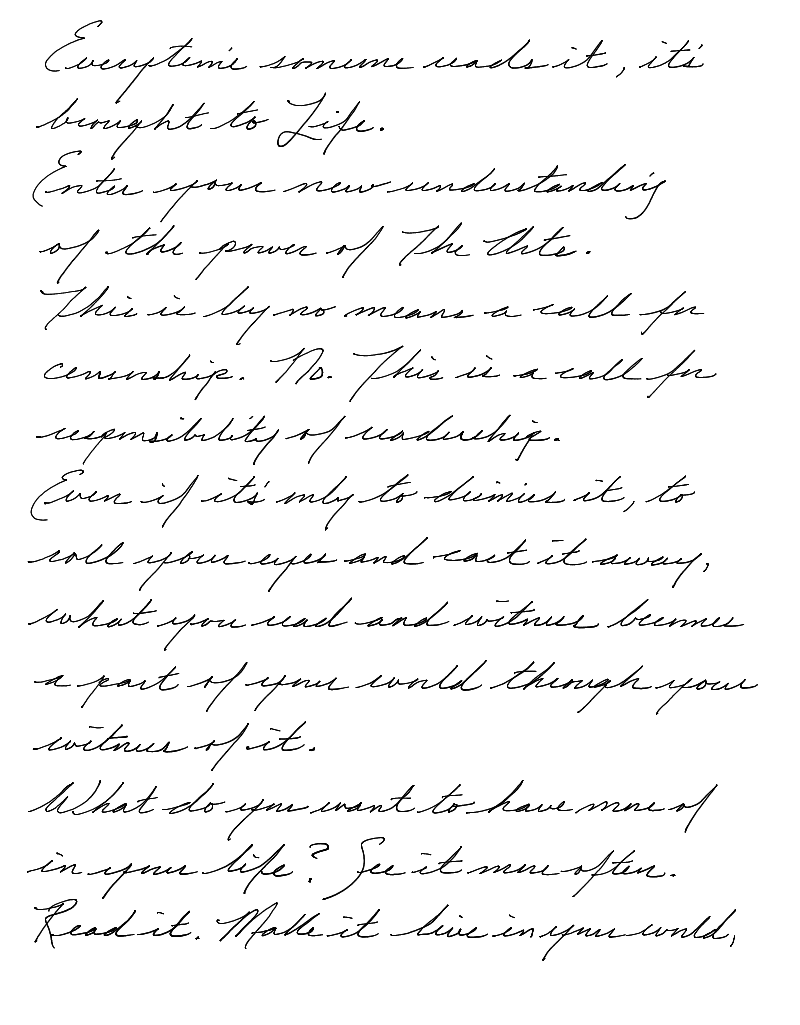 Everytime someone reads it, it's
brought to Life.
Enter your new understanding
of the power of The Arts.
This is by no means a call for
censorship. No. This is a call for
responsibility of readership.
Even if it's only to dismiss it, to
roll your eyes and cast it away,
what you read and witness becomes
a part of your world through your
witness of it.
What do you want to have more of
in your life? See it more often.
Read it. Make it live in your world,